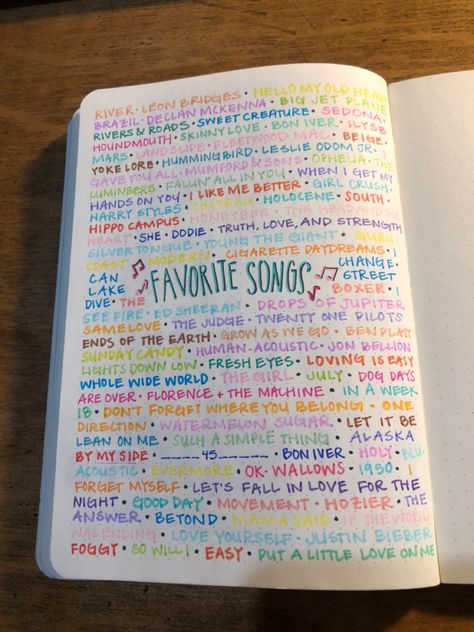 RIVER • LEON BRIDGES • HELLO MY OLD HEART
BRAZIL • DECLAN MCKENNA • BIG JET PLANE
RIVERS & ROADS • SWEET CREATURE • SEDONA •
HOUNDMOUTH • SKINNY LOVE • BON IVER • ILYSB
MARS • LANDSLIDE • FLEETWOOD MAC • BEIGE •
YOKE LORE • HUMMINGBIRD • LESLIE ODOM JR. • I
GAVE YOU ALL • MUMFORD & SONS • OPHELIA • THE
LUMINEERS • FALLIN' ALL IN YOU • WHEN I GET MY
HANDS ON YOU • I LIKE ME BETTER • GIRL CRUSH •
HARRY STYLES • CHATEAU • HOLOCENE • SOUTH •
HIPPO CAMPUS • HONEYBEE • THE HEAD AND THE
HEART • SHE • DODIE • TRUTH, LOVE, AND STRENGTH
SILVER TONGUE • YOUNG THE GIANT • GURU •
COAST MODERN • CIGARETTE DAYDREAMS • I
CAN CHANGE •
LAKE FAVORITE SONGS STREET
DIVE • THE BOXER • I
SEE FIRE • ED SHEERAN • DROPS OF JUPITER
SAME LOVE • THE JUDGE • TWENTY ONE PILOTS
ENDS OF THE EARTH • GROW AS WE GO • BEN PLATT
SUNDAY CANDY • HUMAN-ACOUSTIC • JON BELLION
LIGHTS DOWN LOW • FRESH EYES • LOVING IS EASY
WHOLE WIDE WORLD • THE GIRL • JULY • DOG DAYS
ARE OVER • FLORENCE + THE MACHINE • IN A WEEK
18 • DON'T FORGET WHERE YOU BELONG • ONE
DIRECTION • WATERMELON SUGAR • LET IT BE
LEAN ON ME • SUCH A SIMPLE THING • ALASKA
BY MY SIDE • _____45_____ • BON IVER • HOLY • BLU•
ACOUSTIC • EVERMORE • OK • WALLOWS • 1950 • I
FORGET MYSELF • LET'S FALL IN LOVE FOR THE
NIGHT • GOOD DAY • MOVEMENT • HOZIER • THE
ANSWER • BEYOND • MAMA SAID • IF THE WORLD
WAS ENDING • LOVE YOURSELF • JUSTIN BIEBER
FOGGY • SO WILL I • EASY • PUT A LITTLE LOVE ON ME